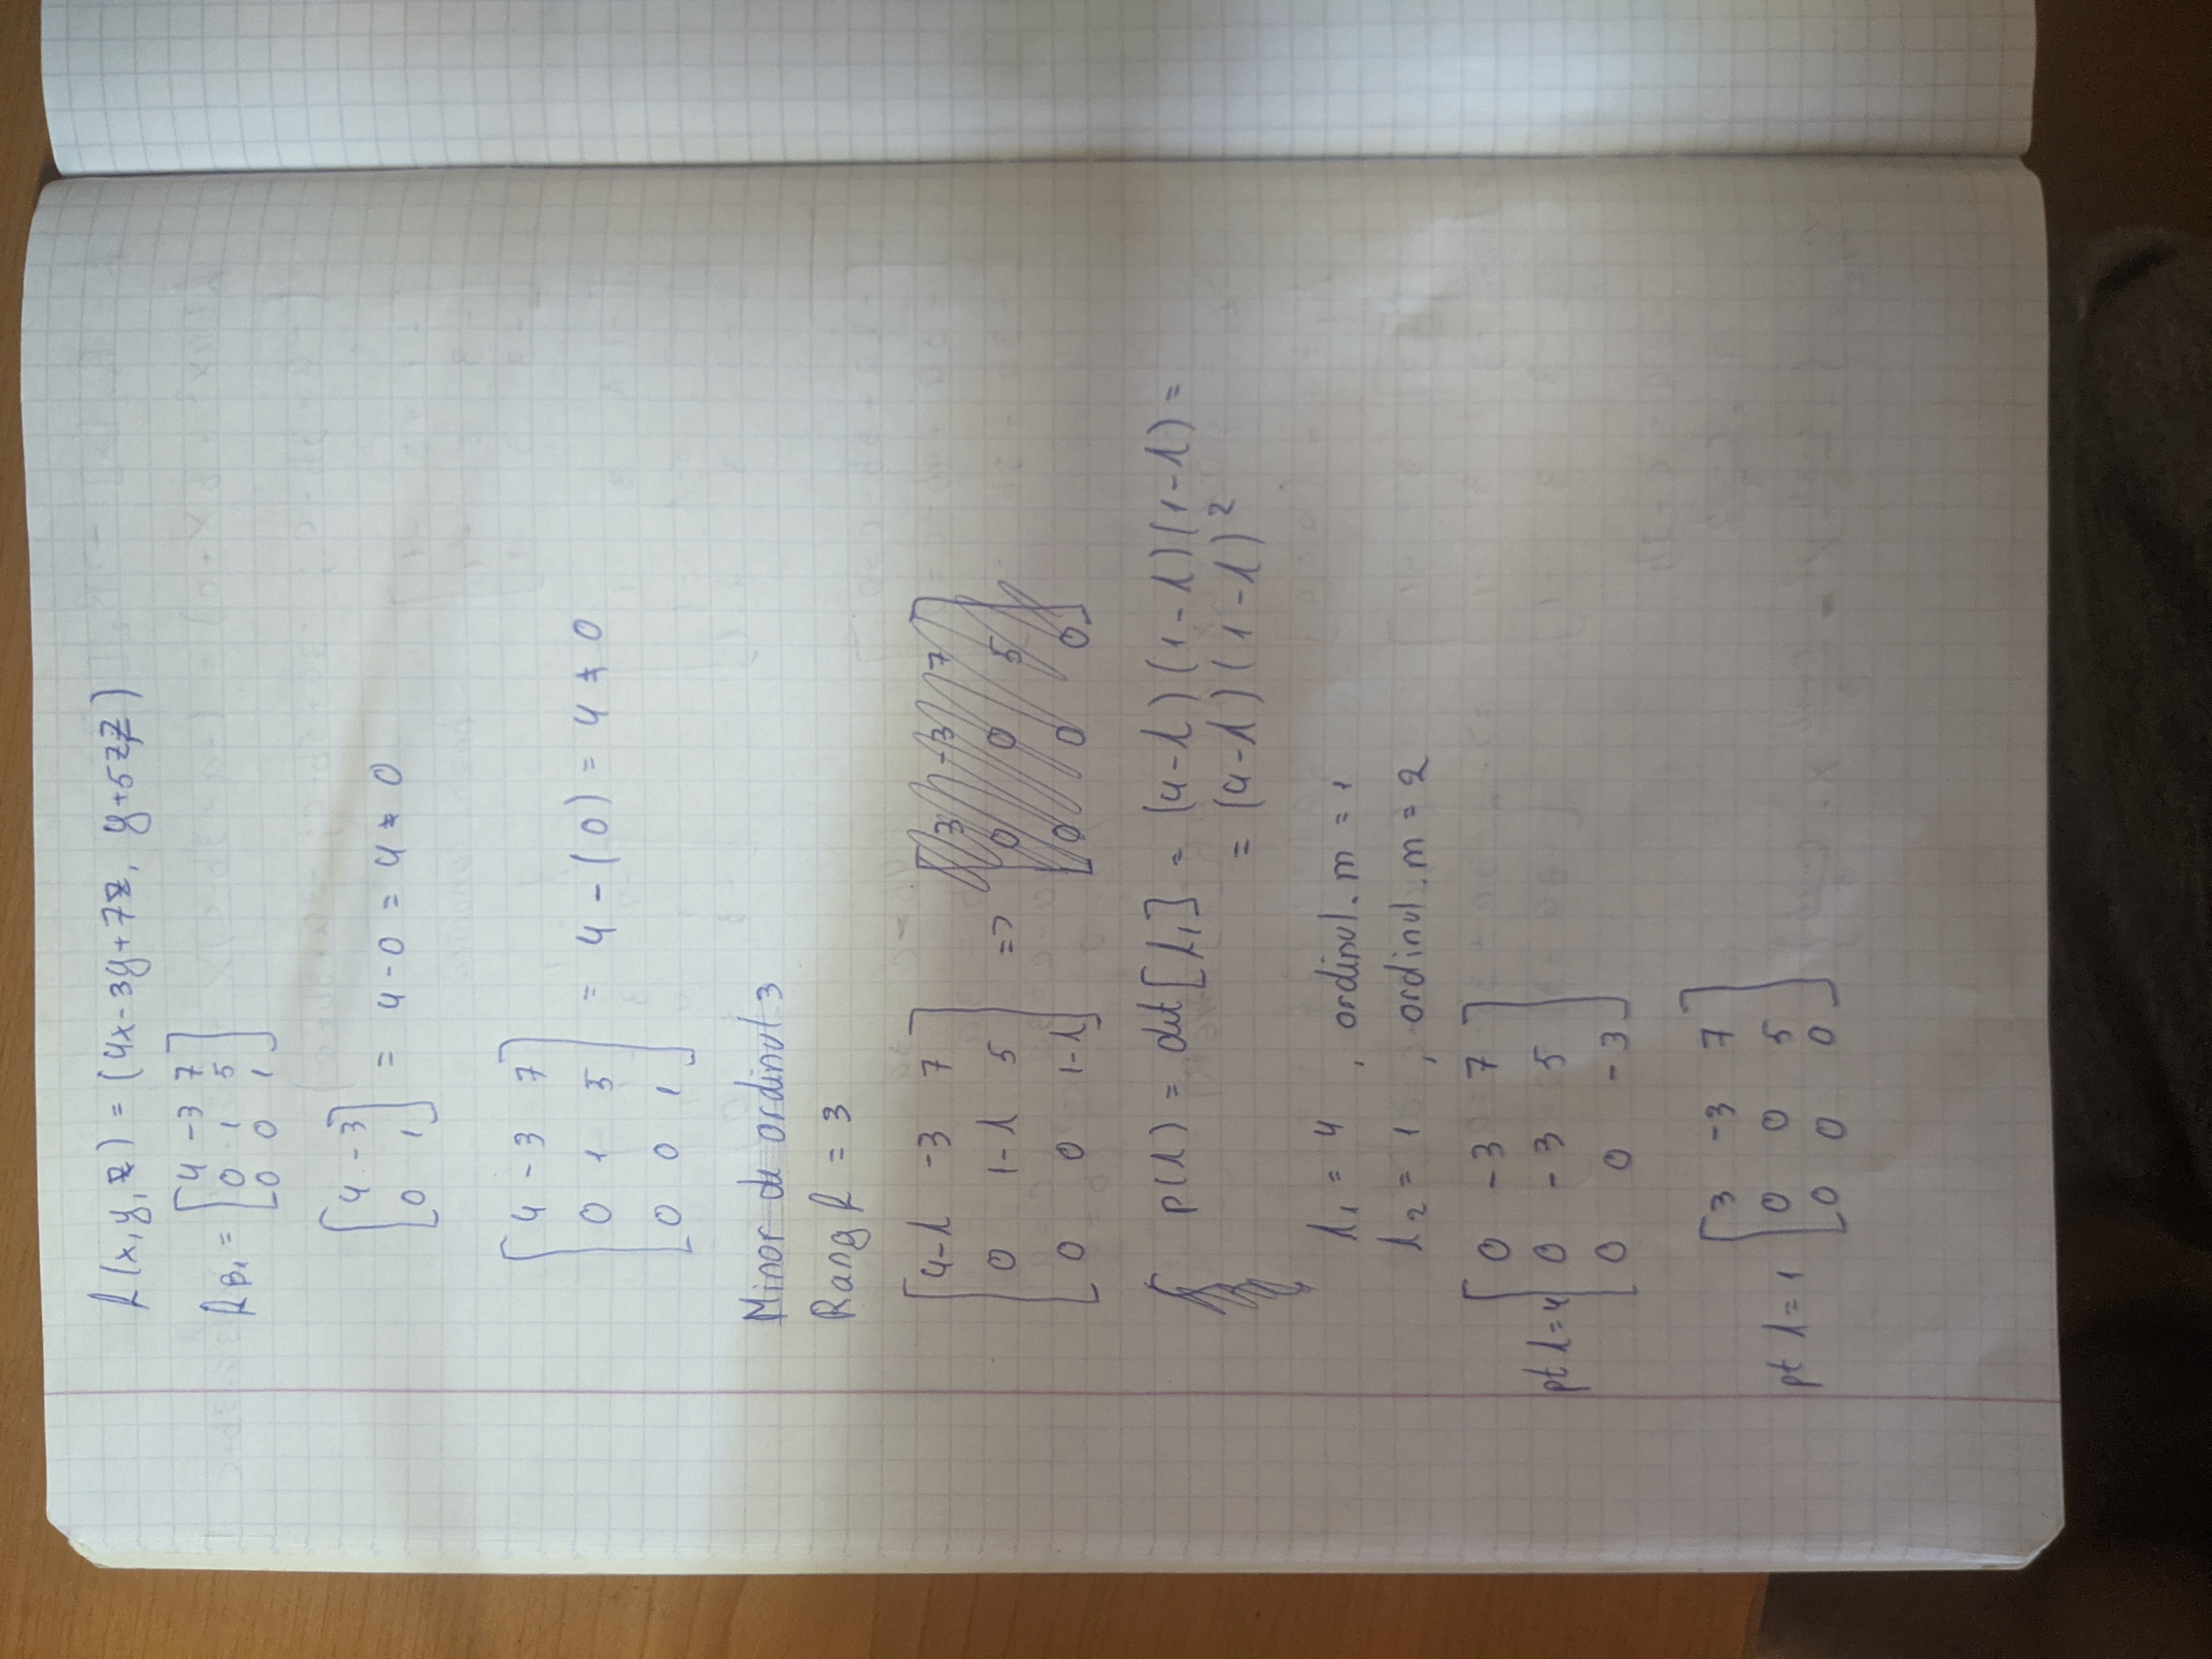 f(x,y,z) = (4x-3y+7z, y+5z, z)
f_B₁ = [4 -3 7
0 1 5
0 0 1]
[4 -3
0 1] = 4-0 = 4 ≠ 0
[4 -3 7
0 1 5
0 0 1] = 4-(0) = 4 ≠ 0
Minor de ordinul 3
Rang f = 3
[4-λ -3 7
0 1-λ 5
0 0 1-λ] =>
[3 -3 7
0 0 5
0 0 0]
p(λ) = det[f₁] = (4-λ)(1-λ)(1-λ) =
= (4-λ)(1-λ)²
λ₁ = 4 , ordinul.m = 1
λ₂ = 1 , ordinul.m = 2
pt λ=4 [0 -3 7
0 -3 5
0 0 -3]
pt λ=1 [3 -3 7
0 0 5
0 0 0]